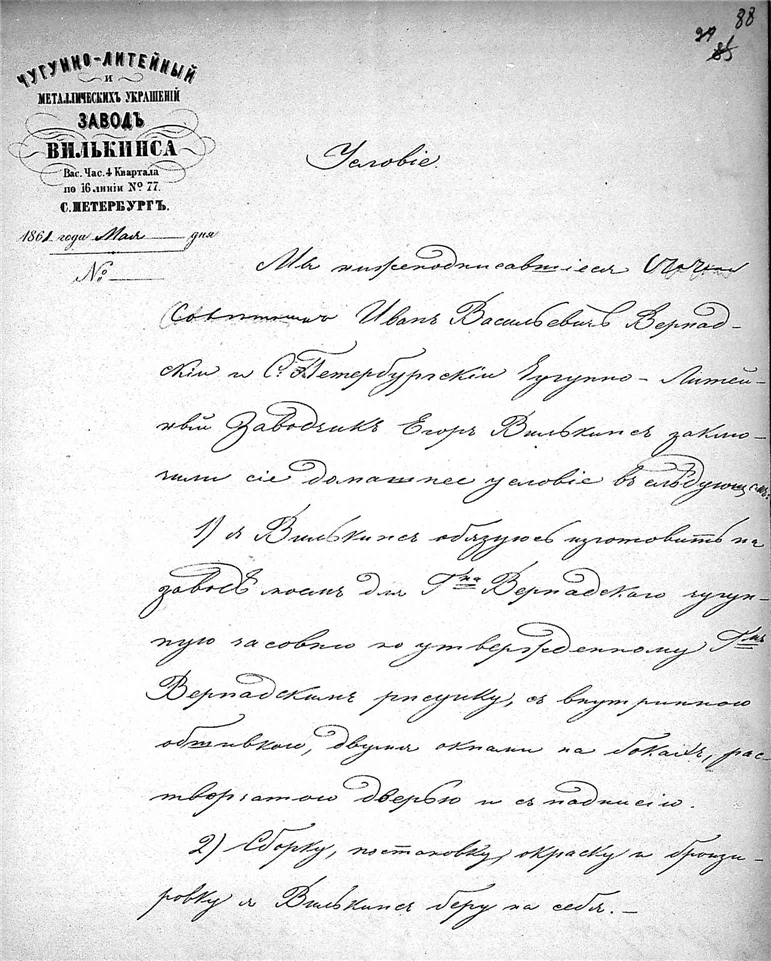 88
29
85
ЧУГУННО-ЛИТЕЙНЫЙ
И
МЕТАЛЛИЧЕСКИХЪ УКРАШЕНІЙ
ЗАВОДЪ
ВИЛЬКИНСА
Вас. Час. 4 Квартала
по 16 линіи № 77.
С. ПЕТЕРБУРГЪ.
1861 года Мая дня
№
Условіе.
Мы нижеподписавшіеся
Иванъ Васильевичъ Вернад-
скій и С. Петербургскій Чугунно-Литей-
ный Заводчикъ Егоръ Вилькинсъ заклю-
чили сіе домашнее условіе въ слѣдующемъ:
1) я Вилькинсъ обязуюсь изготовить на
заводѣ моемъ для Гна Вернадского чугун-
ную часовню по утвержденному Гмъ
Вернадскимъ рисунку, съ внутринною
обшивкою, двумя окнами на бокахъ, рас-
творчатою дверью и съ надписію.
2) Сборку, постановку, окраску и бронзи-
ровку я Вилькинсъ беру на себя.—